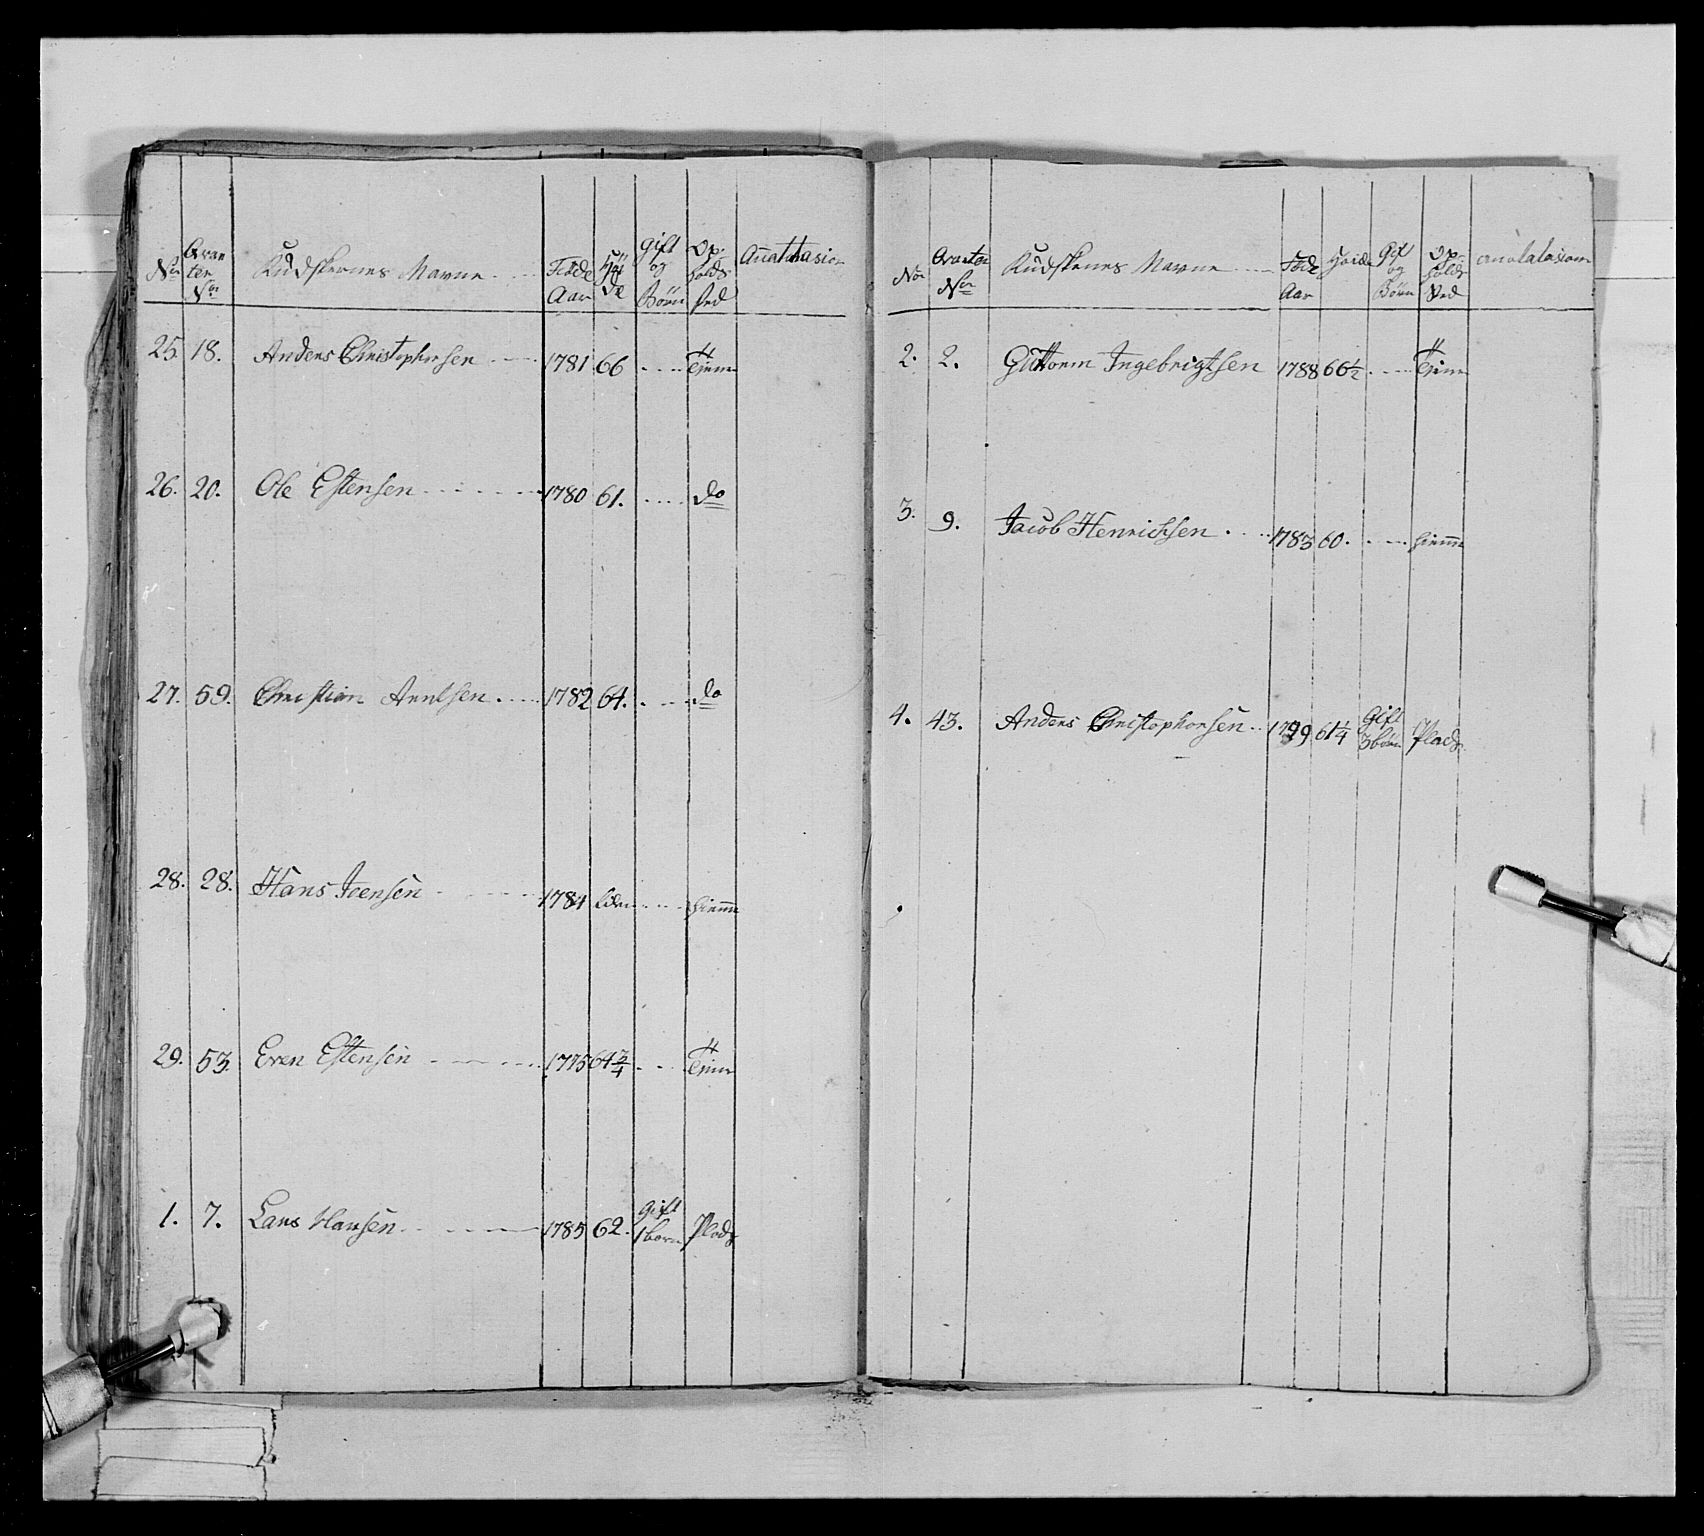 Nor Qvar ter Nor Kudskernes Navne Føde Aar Høi de Gift og Børn Op- holds sted
25. 18. Anders Christophersen 1781 66 Tjenr
26. 20. Ole Estensen 1780 61. do
27. 59. Christian Arnelsen 1782 64. do
28. 28. Hans Joensen 1784 hiemme
29. 53. Even Estensen 1775 64 3/4 Tjenr
1. 7. Lars Hansen 1785 62. Gift 1 børn Plads
Nor Qvarter Nor Kudskernes Navne Føde Aar Høide Gift og Børn Op- holds Sted
2. 2. Guttorm Ingebrigtsen 1788 66 1/2 Tjenr
3. 9. Jacob Henrichsen 1783 60. hiemme
4. 43. Anders Christophersen 61 1/4 Gift 3 børn Plads